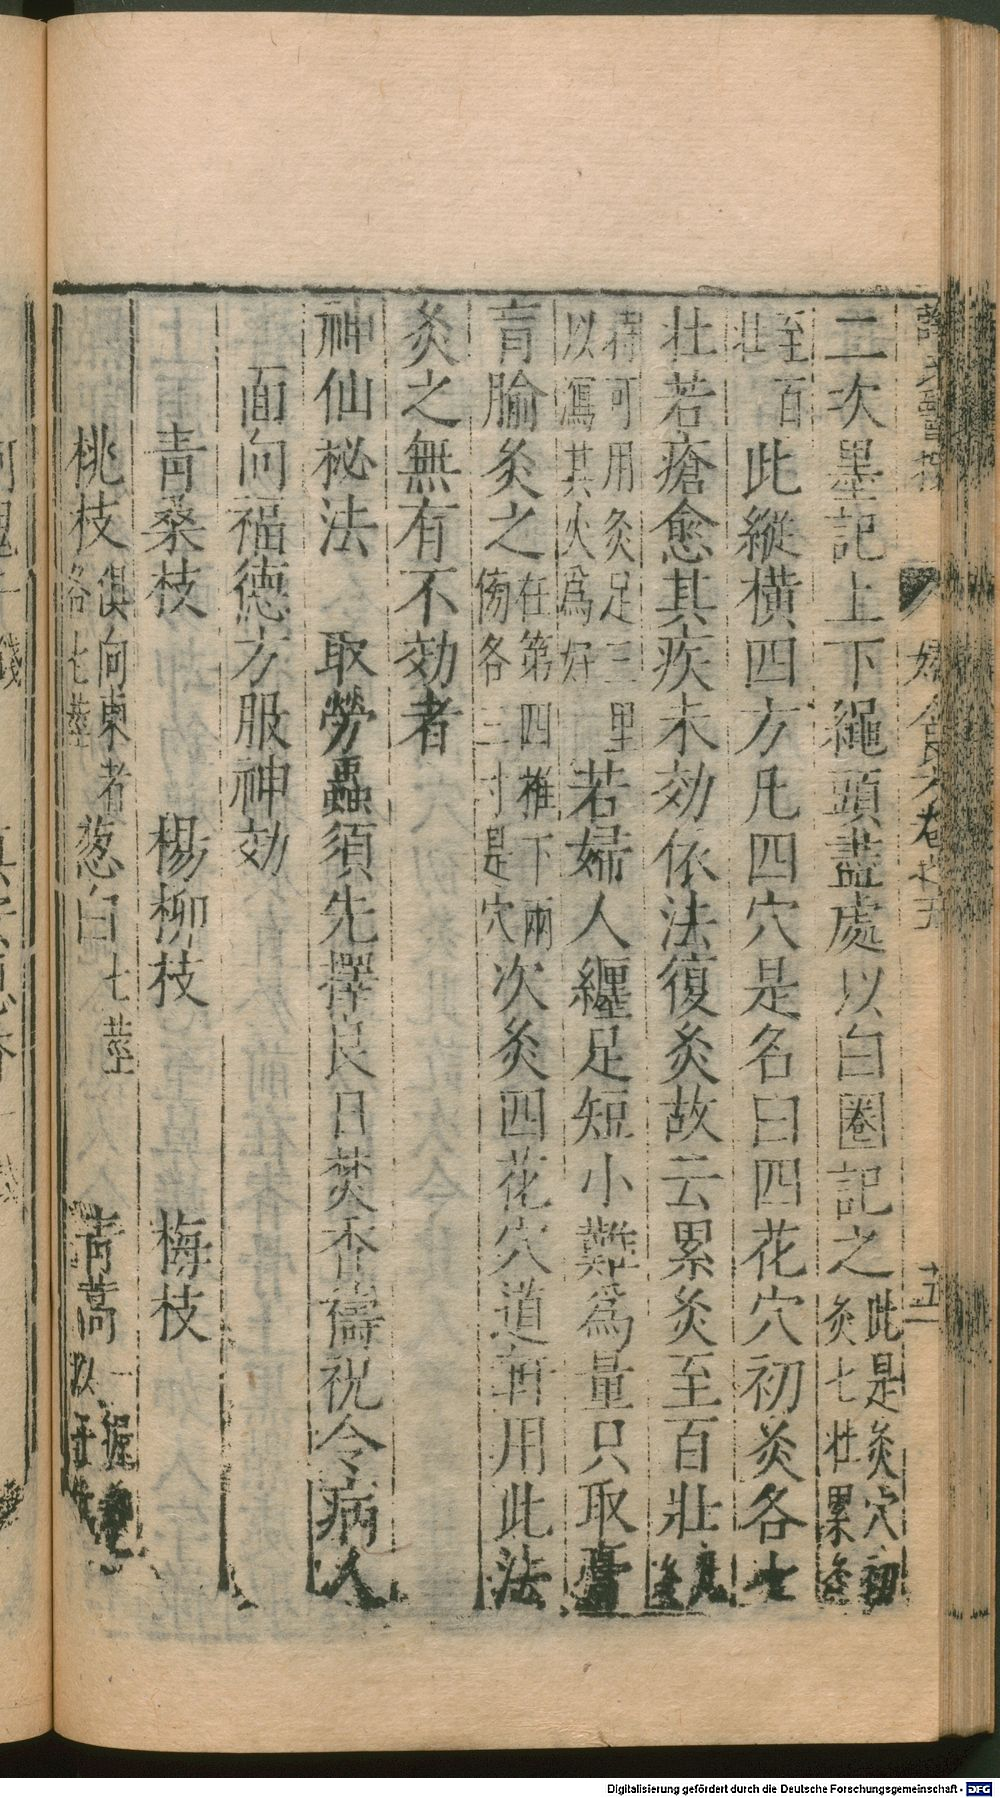 二次墨記上下繩頭盡處以白圈記之此是灸穴初灸七壯累灸
至百壯此縱橫四方凡四穴是名曰四花穴初灸各七
壯若瘡愈其疾未効依法復灸故云累灸至百壯
待可用灸足三里以瀉其火爲好若婦人纏足短小難爲量只取膏
肓腧灸之在第四椎下兩傍各三寸是穴次灸四花穴道暫用此法
灸之無有不効者
神仙秘法 取勞蟲須先擇良日焚香禱祝令病人
面向福德方服神効
青桑枝 楊柳枝 梅枝
桃枝俱向東者各七莖葱白七莖 青蒿一握以
Digitalisierung gefördert durch die Deutsche Forschungsgemeinschaft - DFG